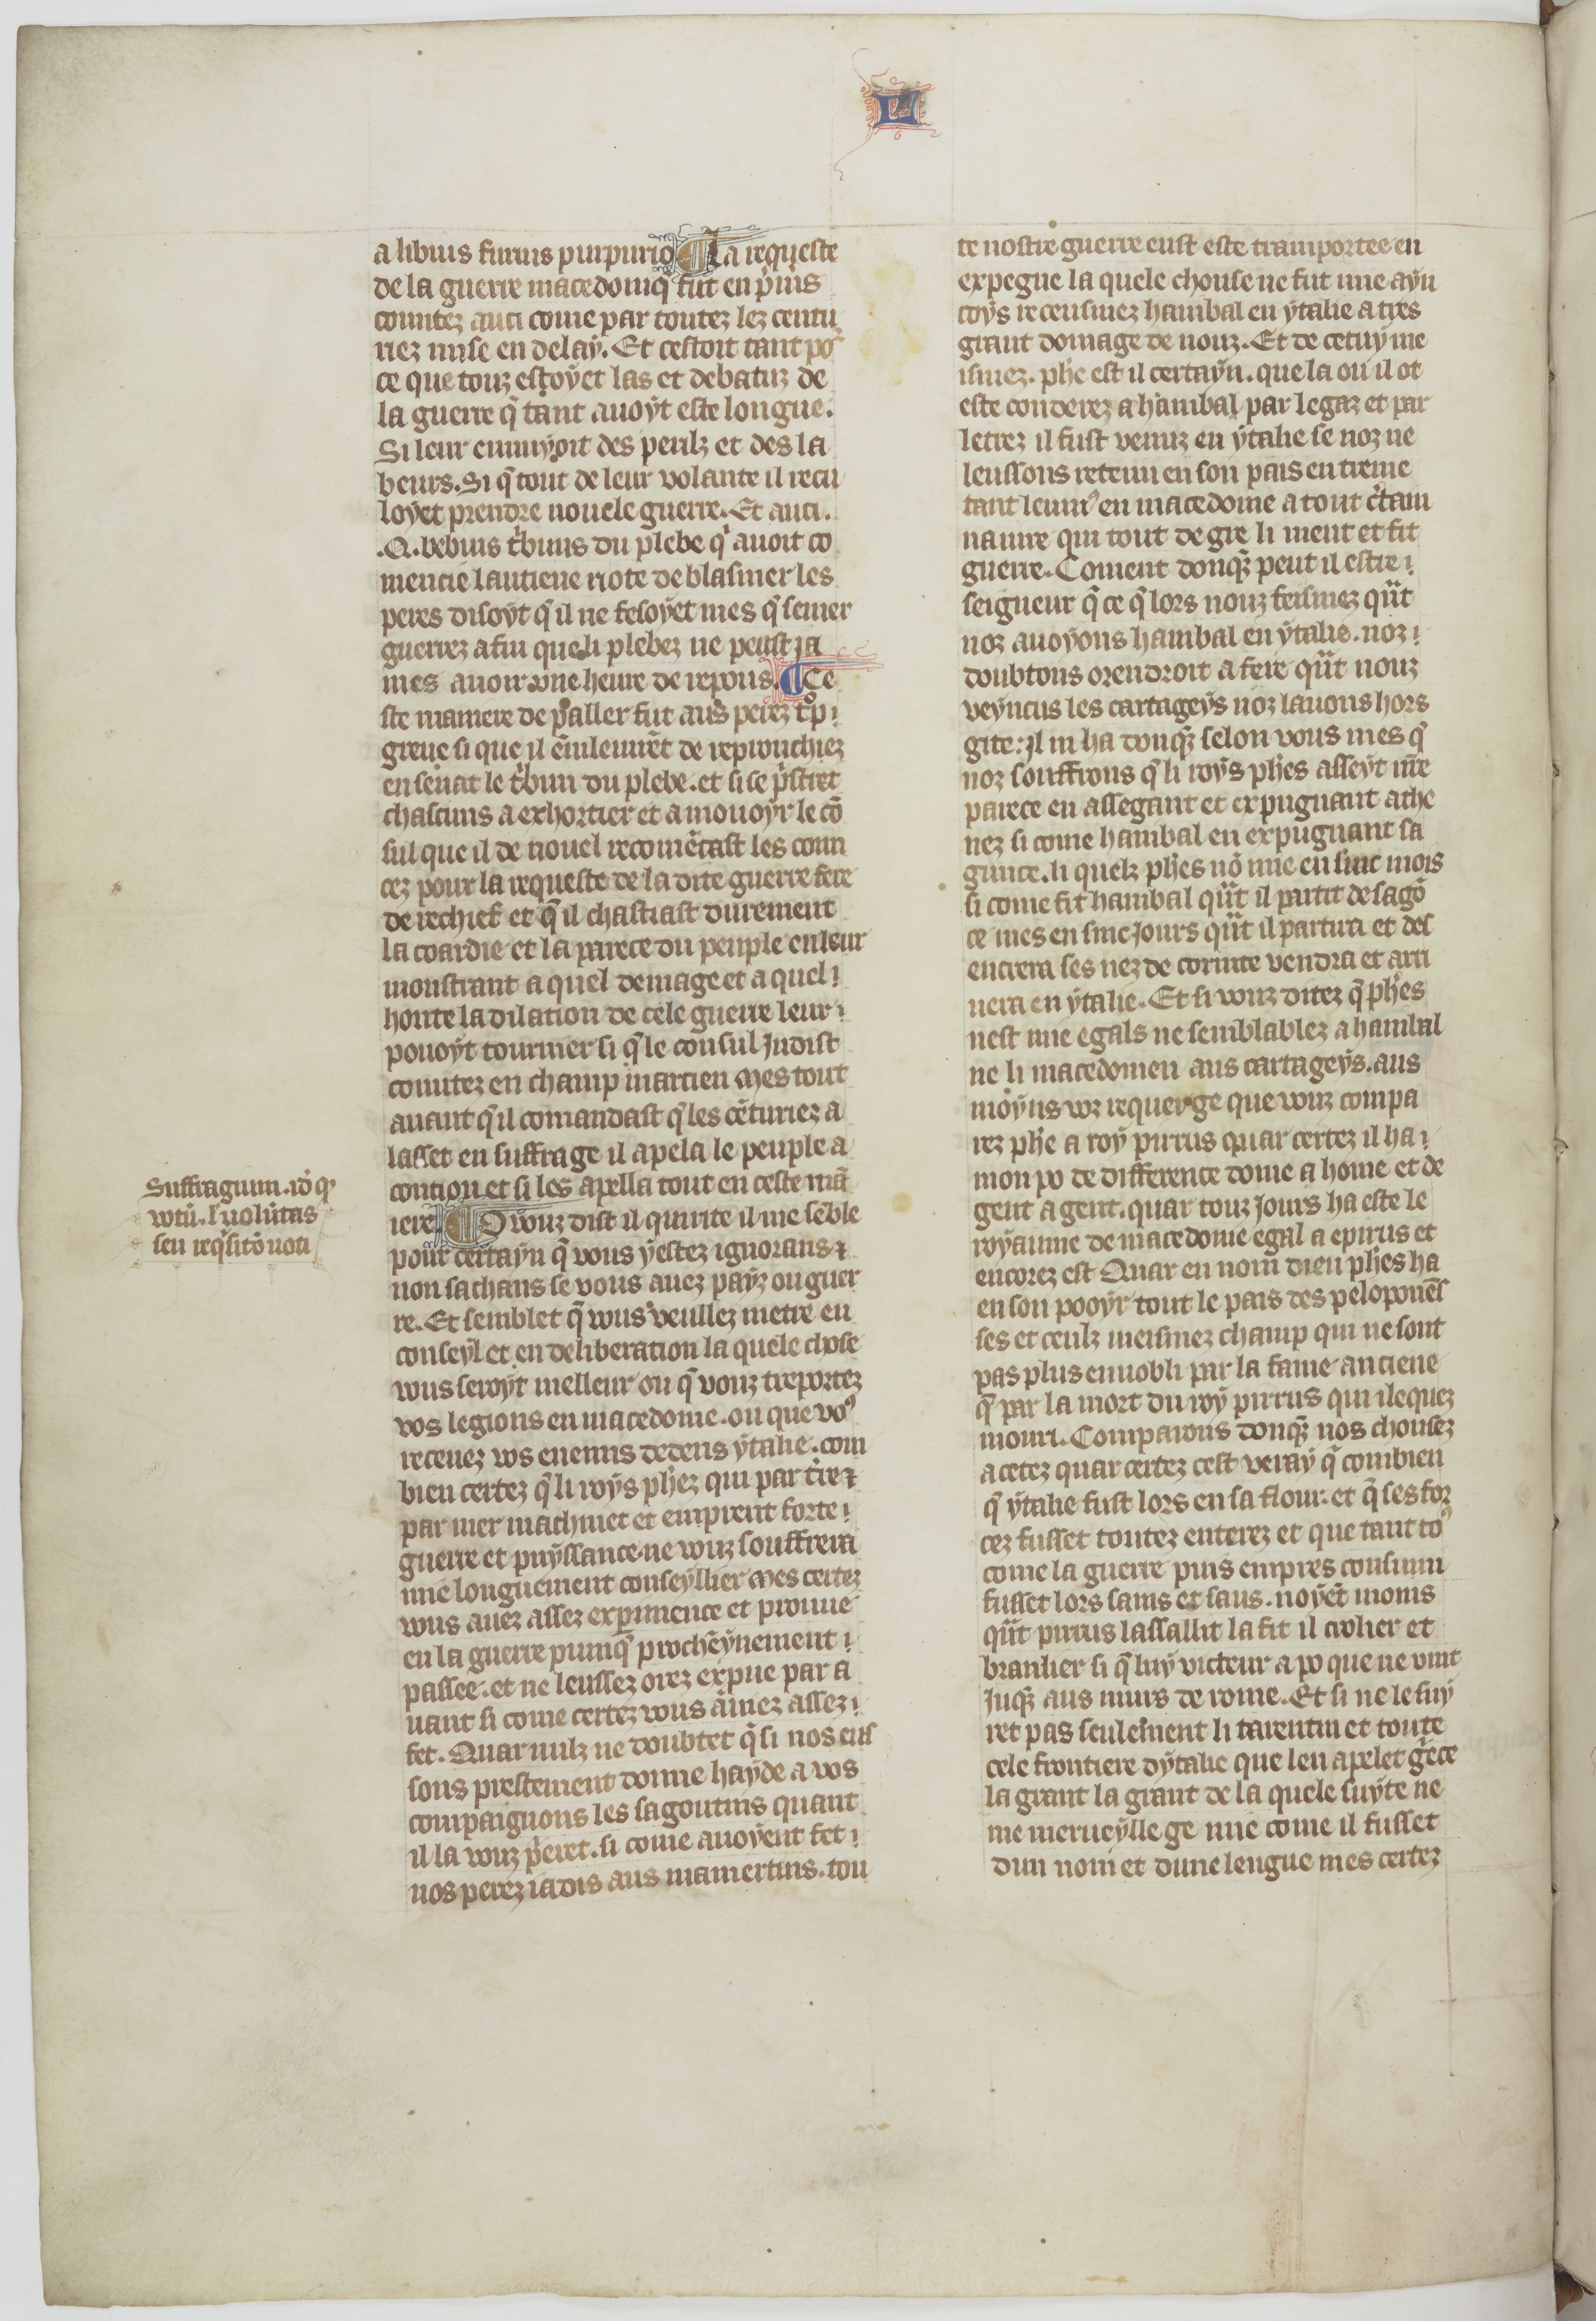 L
a libius furius purpurio ¶ La requeste
de la guerre macedoniq̃ fut en p̃m̃s
comitez auci come par toutez lez centu
riez mise en delay. Et cestoit tant po᷑
ce que touz estoyẽt las et debatuz de
la guerre q̃ tant auoyt este longue.
Si leur ennuyoit des perilz et des la
beurs. Si q̃ tout de leur volante il recu
loyet prendre nouele guerre. Et auci.
.Q. bebius t̃buns du plebe q̃ auoit co
mencie lanciene riote de blasmer les
peres disoyt q̃l ne fesoyet mes q̃ semer
guerrez afin que li plebez ne peust ia
mes auoir une heure de repous. ¶ Ce
ste maniere de p̃aller fut aus perez t̃p
greue si que il ẽmleuirẽt de reprouchiez
en senat le t̃bun du plebe. et si se p̃stret
chascuns a exhortier et a mouoyr le cõ
sul que il de nouel recomẽcast les com
cez pour la requeste de la dite guerre fere
de rechief et q̃ il chastiast durement
la coardie et la parece du peuple en leur
monstrant a quel demage et a quel
honte la dilation de cele guerre leur
pouoyt tourner si q̃ le consul Indist
comitez en champ marcien Mes tout
auant q̃l comandast q̃ les cẽturiez a
lasset en suffrage il apela le peuple a
contion et si les apella tout en ceste mã
iere ¶ O vouz dist il quirite il me sẽble
pour certayn q̃ vous yestez ignorans ⁊
non sachans se vous auez payz ou guer
re. Et semblet q̃ vous veullez metre en
conseyl et en deliberation la quele chose
vous seroyt melleur ou q̃ vouz treportez
vos legions en macedoine. ou que vo᷒
receuez vos enemis dedens ytalie. com
bien certez q̃ li roys phẽz qui par t̃re ⁊
par mer machinet et emprent forte
guerre et puyssance. ne vouz souffrera
mie longuement conseyllier Mes certez
vous auez assez experimence et prouue
en la guerre puniq̃ prochẽynement
passee. et ne leussez orez expue par a
uant si come certez vous amez assez
fet. Quar nulz ne doubtet q̃ si nos eus
sons prestement donne hayde a vos
compaignons les sagontins quant
il la vouz p̃eret. si come auoyent fet
nos perez iadis aus mamertins. tou
Suffragium. id᷒ q̃
votũ. l̃ uolũtas
seu req̃sitõ uoti
te nostre guerre eust este transportee en
expegne la quele chouse ne fut mie ayn
coys receusmez hanibal en ytalie a tres
grant domage de nouz. Et de cetuy me
ismez. phẽ est il certayn. que la ou il ot
este conderez a hanibal par legaz et par
letrez il fust venuz en ytalie se noz ne
leussons retenu en son pais en treme
tant leuin᷒ en macedoine a tout c̃tain
nauire qui tout de gre li ment et fit
guerre. Coment donq̃z peut il estre
seigneur q̃ ce q̃ lors nouz feismez qũt
noz auoyons hanibal en ytalie. noz
doubtons orendroit a fere qũt nouz
veyncus les cartageys noz lauons hors
gite: Il ni ha donq̃z selon vous mes q̃
noz souffrons q̃ li roys phẽs asseyt nr̃e
parece en assegant et expugnant athe
nez si come hanibal en expugnant sa
gunce. li quelz phẽs nõ mie en sinc mois
si come fit hanibal qũt il partit de sagõ
ce mes en sinc Jours qũt il partira et des
encrera ses nez de corinte vendra et arri
uera en ytalie. Et si vouz ditez q̃ phẽs
nest mie egals ne semblablez a hanibal
ne li macedonien aus cartageys. aus
moyns voz requerge que vouz compa
rez phẽ a roy pirrus quar certez il ha
mon po de difference dome a home et de
gent a gent. quar touz jours ha este le
royaume de macedoine egal a epirus et
encorez est Quar en nom dieu phẽs ha
en son pooyr tout le pais des peloponẽs
ses et ceulz meismez champ qui ne sont
pas plus ennobli par la fame anciene
q̃ par la mort du roy pirrus qui ilequez
mouri. Comparons donq̃z nos chousez
a cetez quar certez cest veray q̃ combien
q̃ ytalie fust lors en sa flour. et q̃ ses for
cez fusset toutez enterez et que tant to᷒
come la guerre puis empres consumi
fusset lors sains et saus. noyẽt moins
qũt pirrus lassallit la fit il croler et
branlier si q̃ luy victeur a po que ne vint
Juq̃z aus murs de rome. Et si ne le suy
ret pas seulement li tarentin et toute
cele frontiere dytalie que len apelet g̃ece
la grant la grant de la quele suyte ne
me merueylle ge mie come il fusset
dun nom et dune lengue mes certez